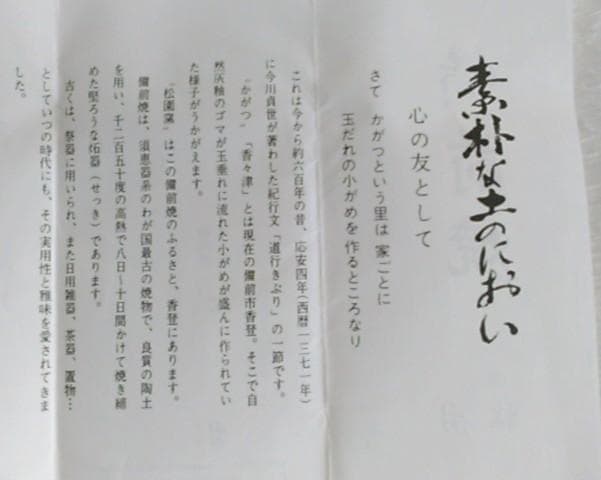 素朴な土のにおい
心の友として
さて かがつという里は 家ごとに
玉だれの小がめを作るところなり
これは今から約六百年の昔、応安四年(西暦一三七一年)
に今川貞世が著わした紀行文「道行きぶり」の一節です。
"かがつ" 「香々津」とは現在の備前市香登。そこで自
然灰釉のゴマが玉垂れに流れた小がめが盛んに作られてい
た様子がうかがえます。
"松園窯"はこの備前焼のふるさと、香登にあります。
備前焼は、須恵器系のわが国最古の焼物で、良質の陶土
を用い、千二百五十度の高熱で八日〜十日間かけて焼き締
めた堅ろうな炻器(せっき)であります。
古くは、祭器に用いられ、また日用雑器、茶器、置物…
としていつの時代にも、その実用性と雅味を愛されてきま
した。